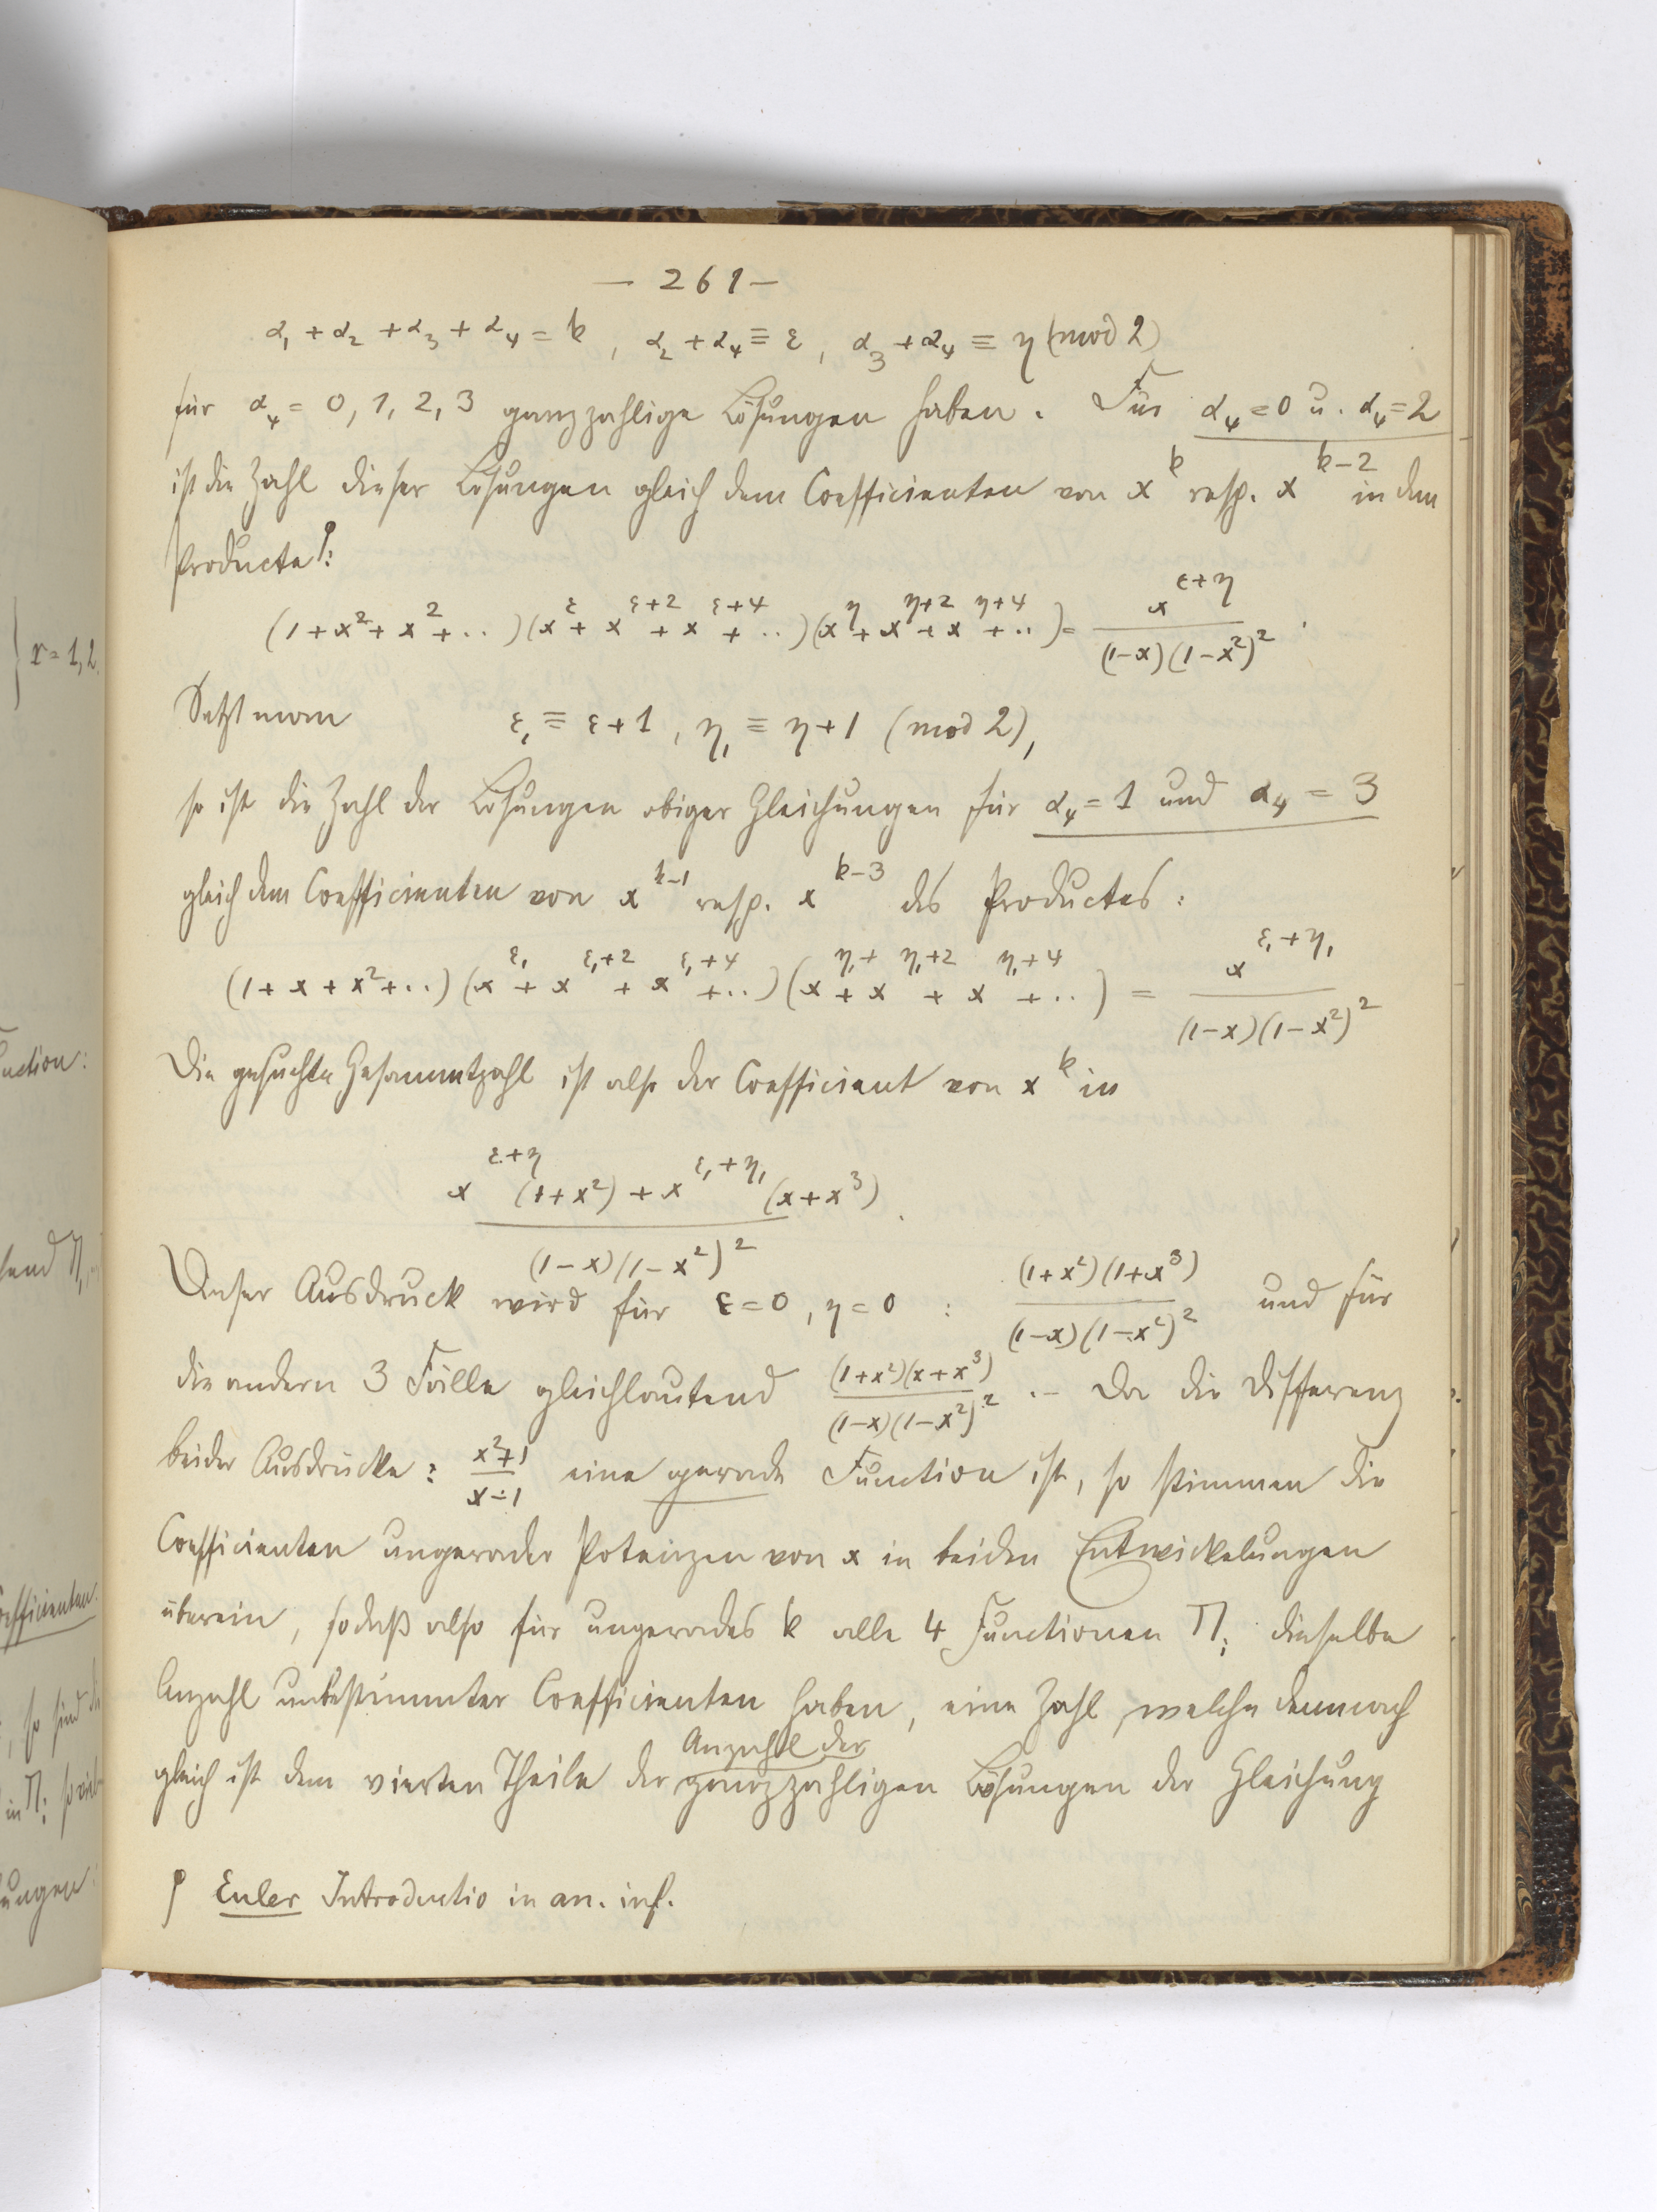 — 261 —
α₁ + α₂ + α₃ + α₄ = k , α₂ + α₄ ≡ ε , α₃ + α₄ ≡ η (mod 2)
für α₄ = 0, 1, 2, 3 ganzzahlige Lösungen haben. Für α₄ = 0 u. α₄ = 2
ist die Zahl dieser Lösungen gleich dem Coefficienten von x^k resp. x^{k-2} in dem
Producte ⫯:
(1 + x² + x² + ..)(x^ε + x^{ε+2} + x^{ε+4} + ..)(x^η + x^{η+2} + x^{η+4} + ..) = x^{ε+η} / (1-x)(1-x²)² .
Setzt man ε₁ ≡ ε+1 , η₁ ≡ η+1 (mod 2),
so ist die Zahl der Lösungen obiger Gleichungen für α₄ = 1 und α₄ = 3
gleich dem Coefficienten von x^{k-1} resp. x^{k-3} des Productes :
(1 + x + x² + ..)(x^{ε₁} + x^{ε₁+2} + x^{ε₁+4} + ..)(x^{η₁} + x^{η₁+2} + x^{η₁+4} + ..) = x^{ε₁+η₁} / (1-x)(1-x²)²
Die gesuchte Gesammtzahl ist also der Coefficient von x^k in
x^{ε+η} (1+x²) + x^{ε₁+η₁} (x+x³) / (1-x)(1-x²)² .
Dieser Ausdruck wird für ε = 0 , η = 0 : (1+x²)(1+x³) / (1-x)(1-x²)² und für
die andern 3 Fälle gleichlautend (1+x²)(x+x³) / (1-x)(1-x²)² .– Da die Differenz
beider Ausdrücke : x²+1 / x-1 eine gerade Function ist, so stimmen die
Coefficienten ungerader Potenzen von x in beiden Entwickelungen
überein, sodaß also für ungerades k alle 4 Functionen Π_i dieselbe
Anzahl unbestimmter Coefficienten haben, eine Zahl, welche demnach
gleich ist dem vierten Theile der Anzahl der ganzzahligen Lösungen der Gleichung
⫯ Euler Introductio in an. inf.
r = 1, 2.
uction:
send Π₁,
oefficienten.
, so sind di
in Π_i so viel
ungen: